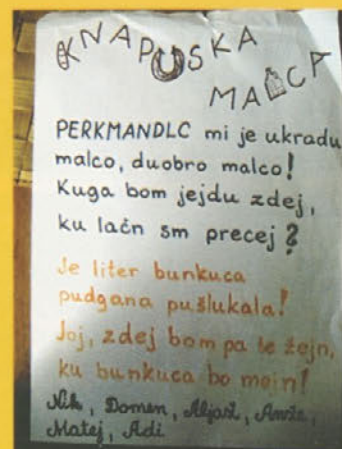 KNAPUSKA
MALCA
PERKMANDLC mi je ukradu
malco, duobro malco!
Kuga bom jejdu zdej,
ku lačn sm precej?
Je liter bunkuca
pudgana pušlukala!
Joj, zdej bom pa še žejn,
ku bunkuca bo mejn!
Nik, Domen, Aljaž, Anže,
Matej, Adi